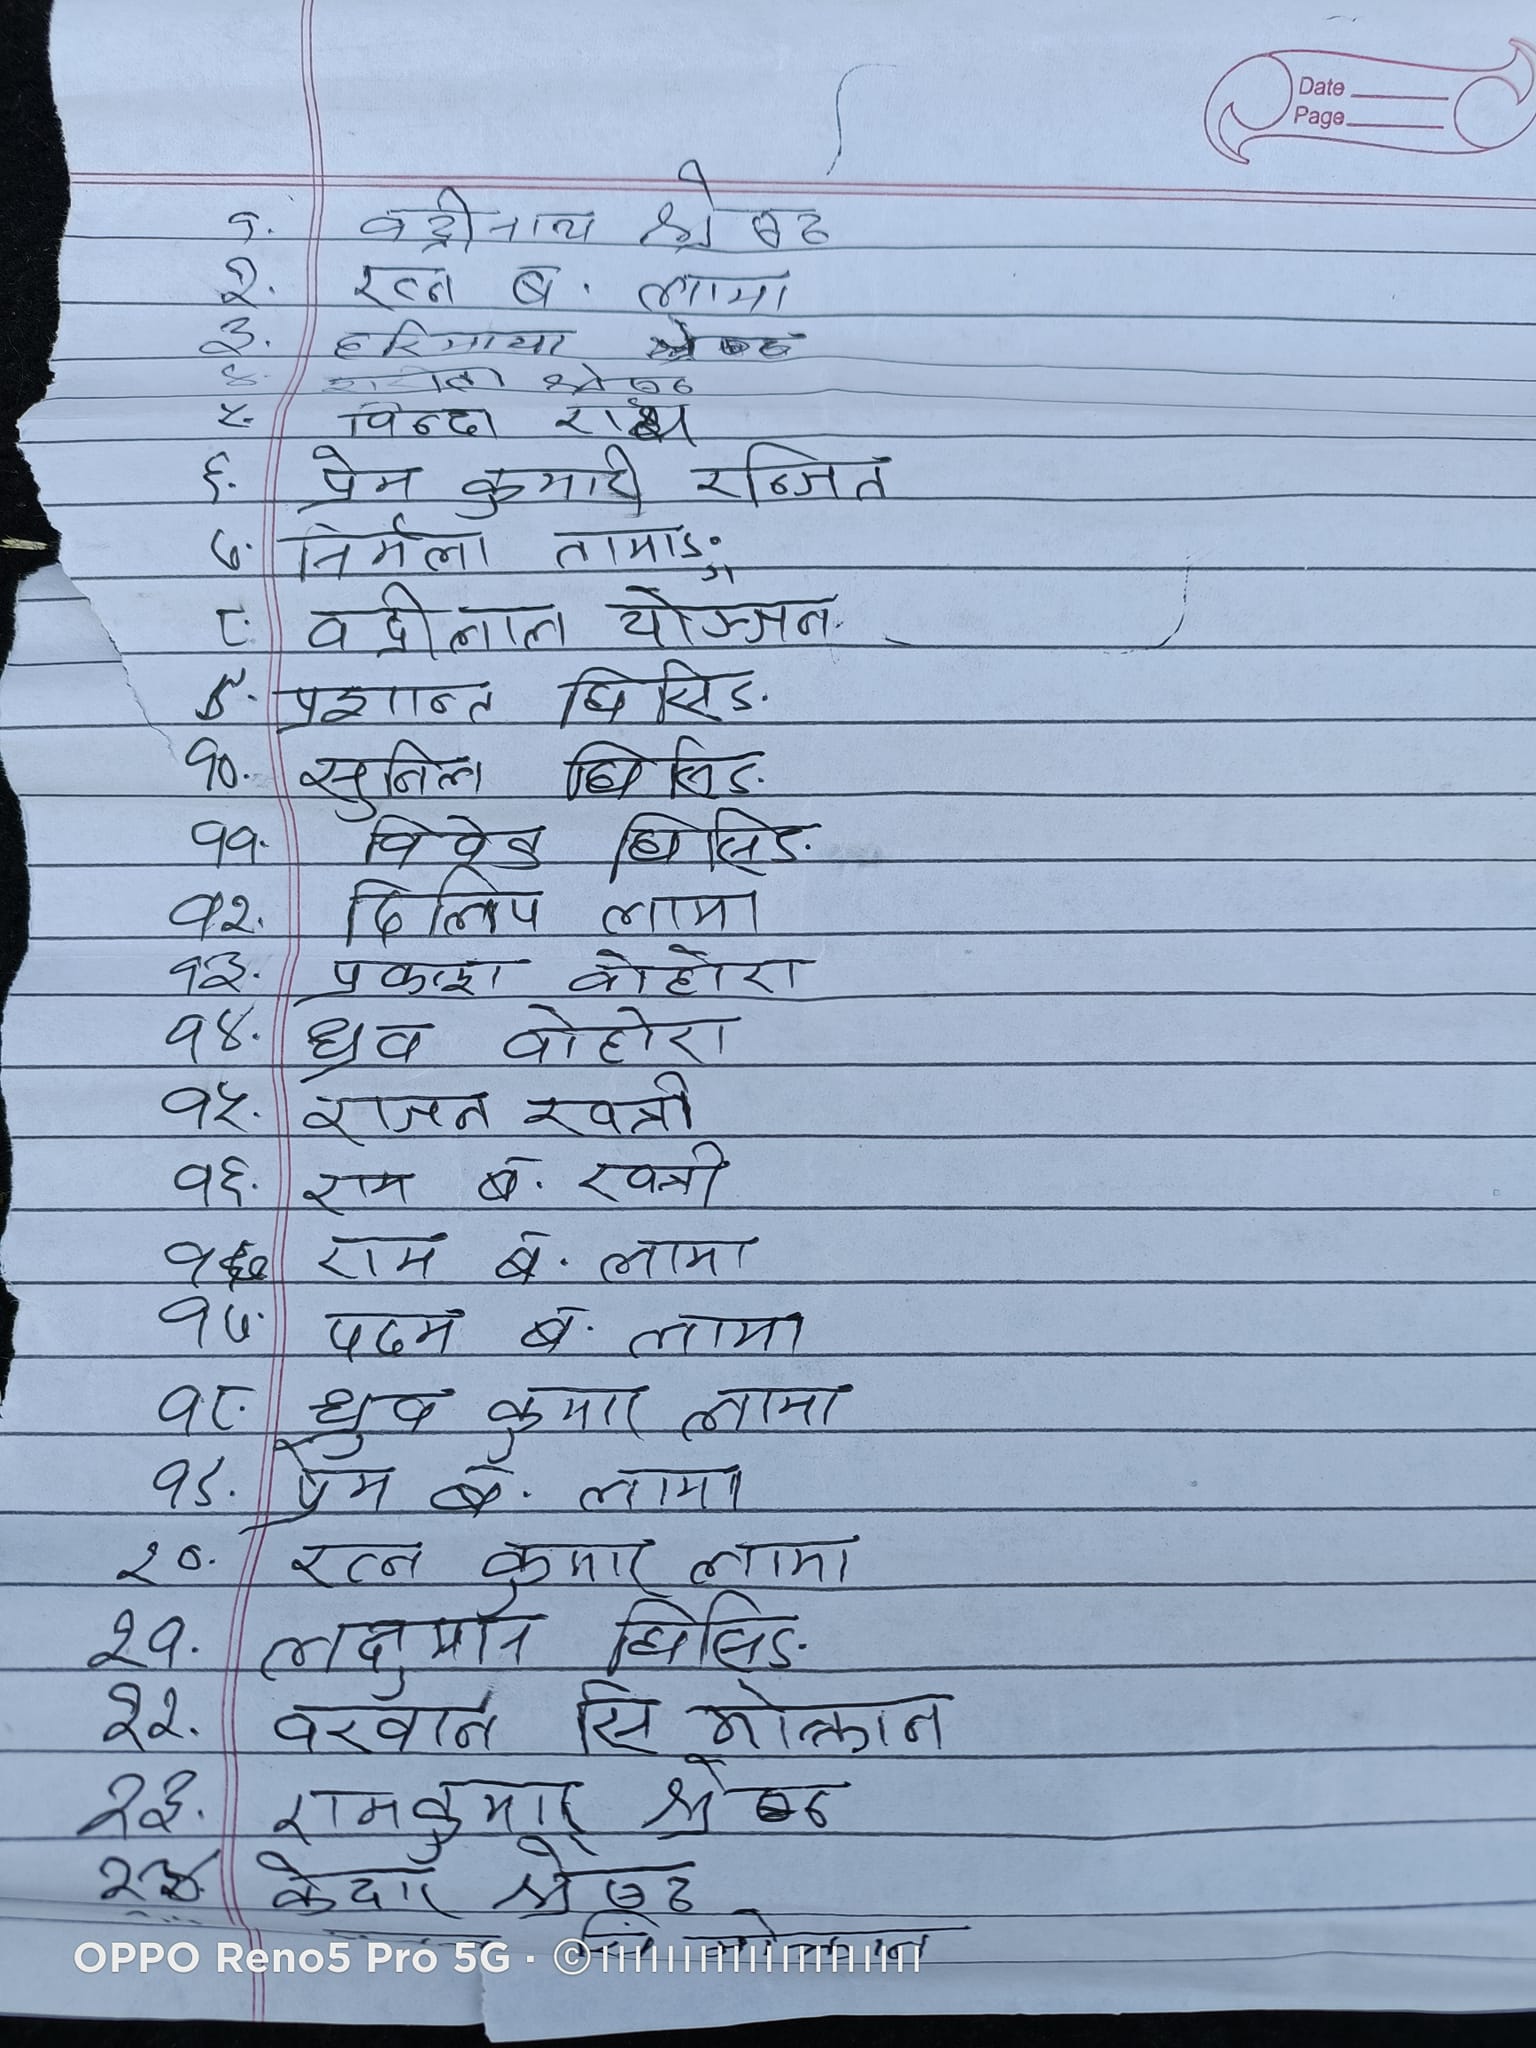 Date
Page
१. वद्रीनाथ श्रेष्ठ
२. रत्न ब. लामा
३. हरिमाया श्रेष्ठ
४. श्रेष्ठ
५. विन्दा
६. प्रेम कुमारी रन्जित
७. निर्मला तामाङ्ग
८. वद्रीलाल योञ्जन
९. प्रशान्त घिसिङ
१०. सुनिल घिसिङ
११. घिसिङ
१२. दिलिप लामा
१३. प्रकाश वोहोरा
१४. ध्रुव वोहोरा
१५. राजन खत्री
१६. राम ब. खत्री
राम ब. लामा
१७. पदम ब. लामा
१८. ध्रुव कुमार लामा
१९. प्रेम ब. लामा
२०. रत्न कुमार लामा
२१. घिसिङ
२२. सि मोक्तान
२३. रामकुमार श्रेष्ठ
२४. केदार श्रेष्ठ
सि मोक्तान
OPPO Reno5 Pro 5G · ©